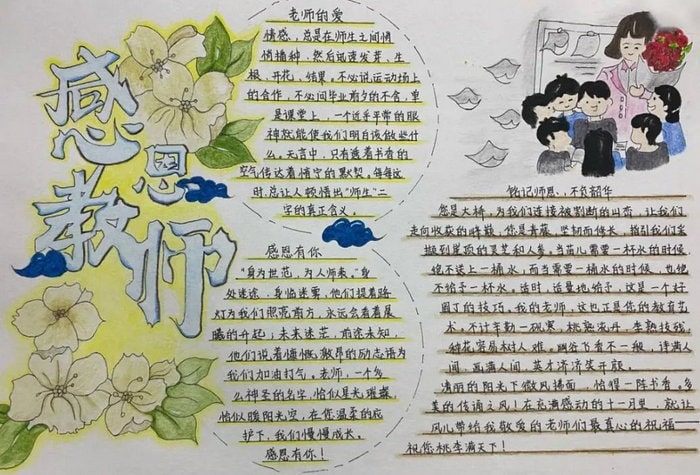 感恩教师
老师的爱
情感，总是在师生之间悄
悄播种，然后迅速发芽、生
根、开花、结果，不必说运动场上
的合作，不必问毕业前夕的不舍，单
是课堂上，一个近乎平常的眼
神就能使我们明白该做些什
么。无言中，只有透着书香的
空气传达着惜守的默契，每每这
时，总让人顿悟出“师生”二
字的真正含义。
感恩有你
“身为世范，为人师表。”身
处迷途，身临迷雾，他们提着路
灯为我们照亮前方，永远会有着晨
曦的升起，未来迷茫，前途未知
他们说着慷慨激昂的励志语为
我们加油打气。老师，一个多
么神圣的名字，恰似星光璀璨
恰似暖阳当空，在您温柔的庇
护下，我们慢慢成长。
感恩有你！
铭记师恩，不负韶华
您是大桥，为我们连接被割断的山峦，让我们
走向收获的峰巅；您是青藤，坚韧而修长，指引我们采
撷到崖顶的灵芝和人参。当苗儿需要一杯水的时候，
绝不送上一桶水，而当需要一桶水的时候，也绝
不给予一杯水。适时，适量地给予，这是一个好
园丁的技巧。我的老师，这也正是您的教育艺
术。不计辛勤一砚寒，桃熟流丹，李熟枝残，
种花容易树人难。幽谷飞香不一般，诗满人
间，画满人间，英才济济笑开颜。
清朗的阳光下微风拂面，恰得一阵书香，多
美的传诵之风！在充满感动的十一月里，就让
风儿带给我敬爱的老师们最真心的祝福——
祝您桃李满天下！